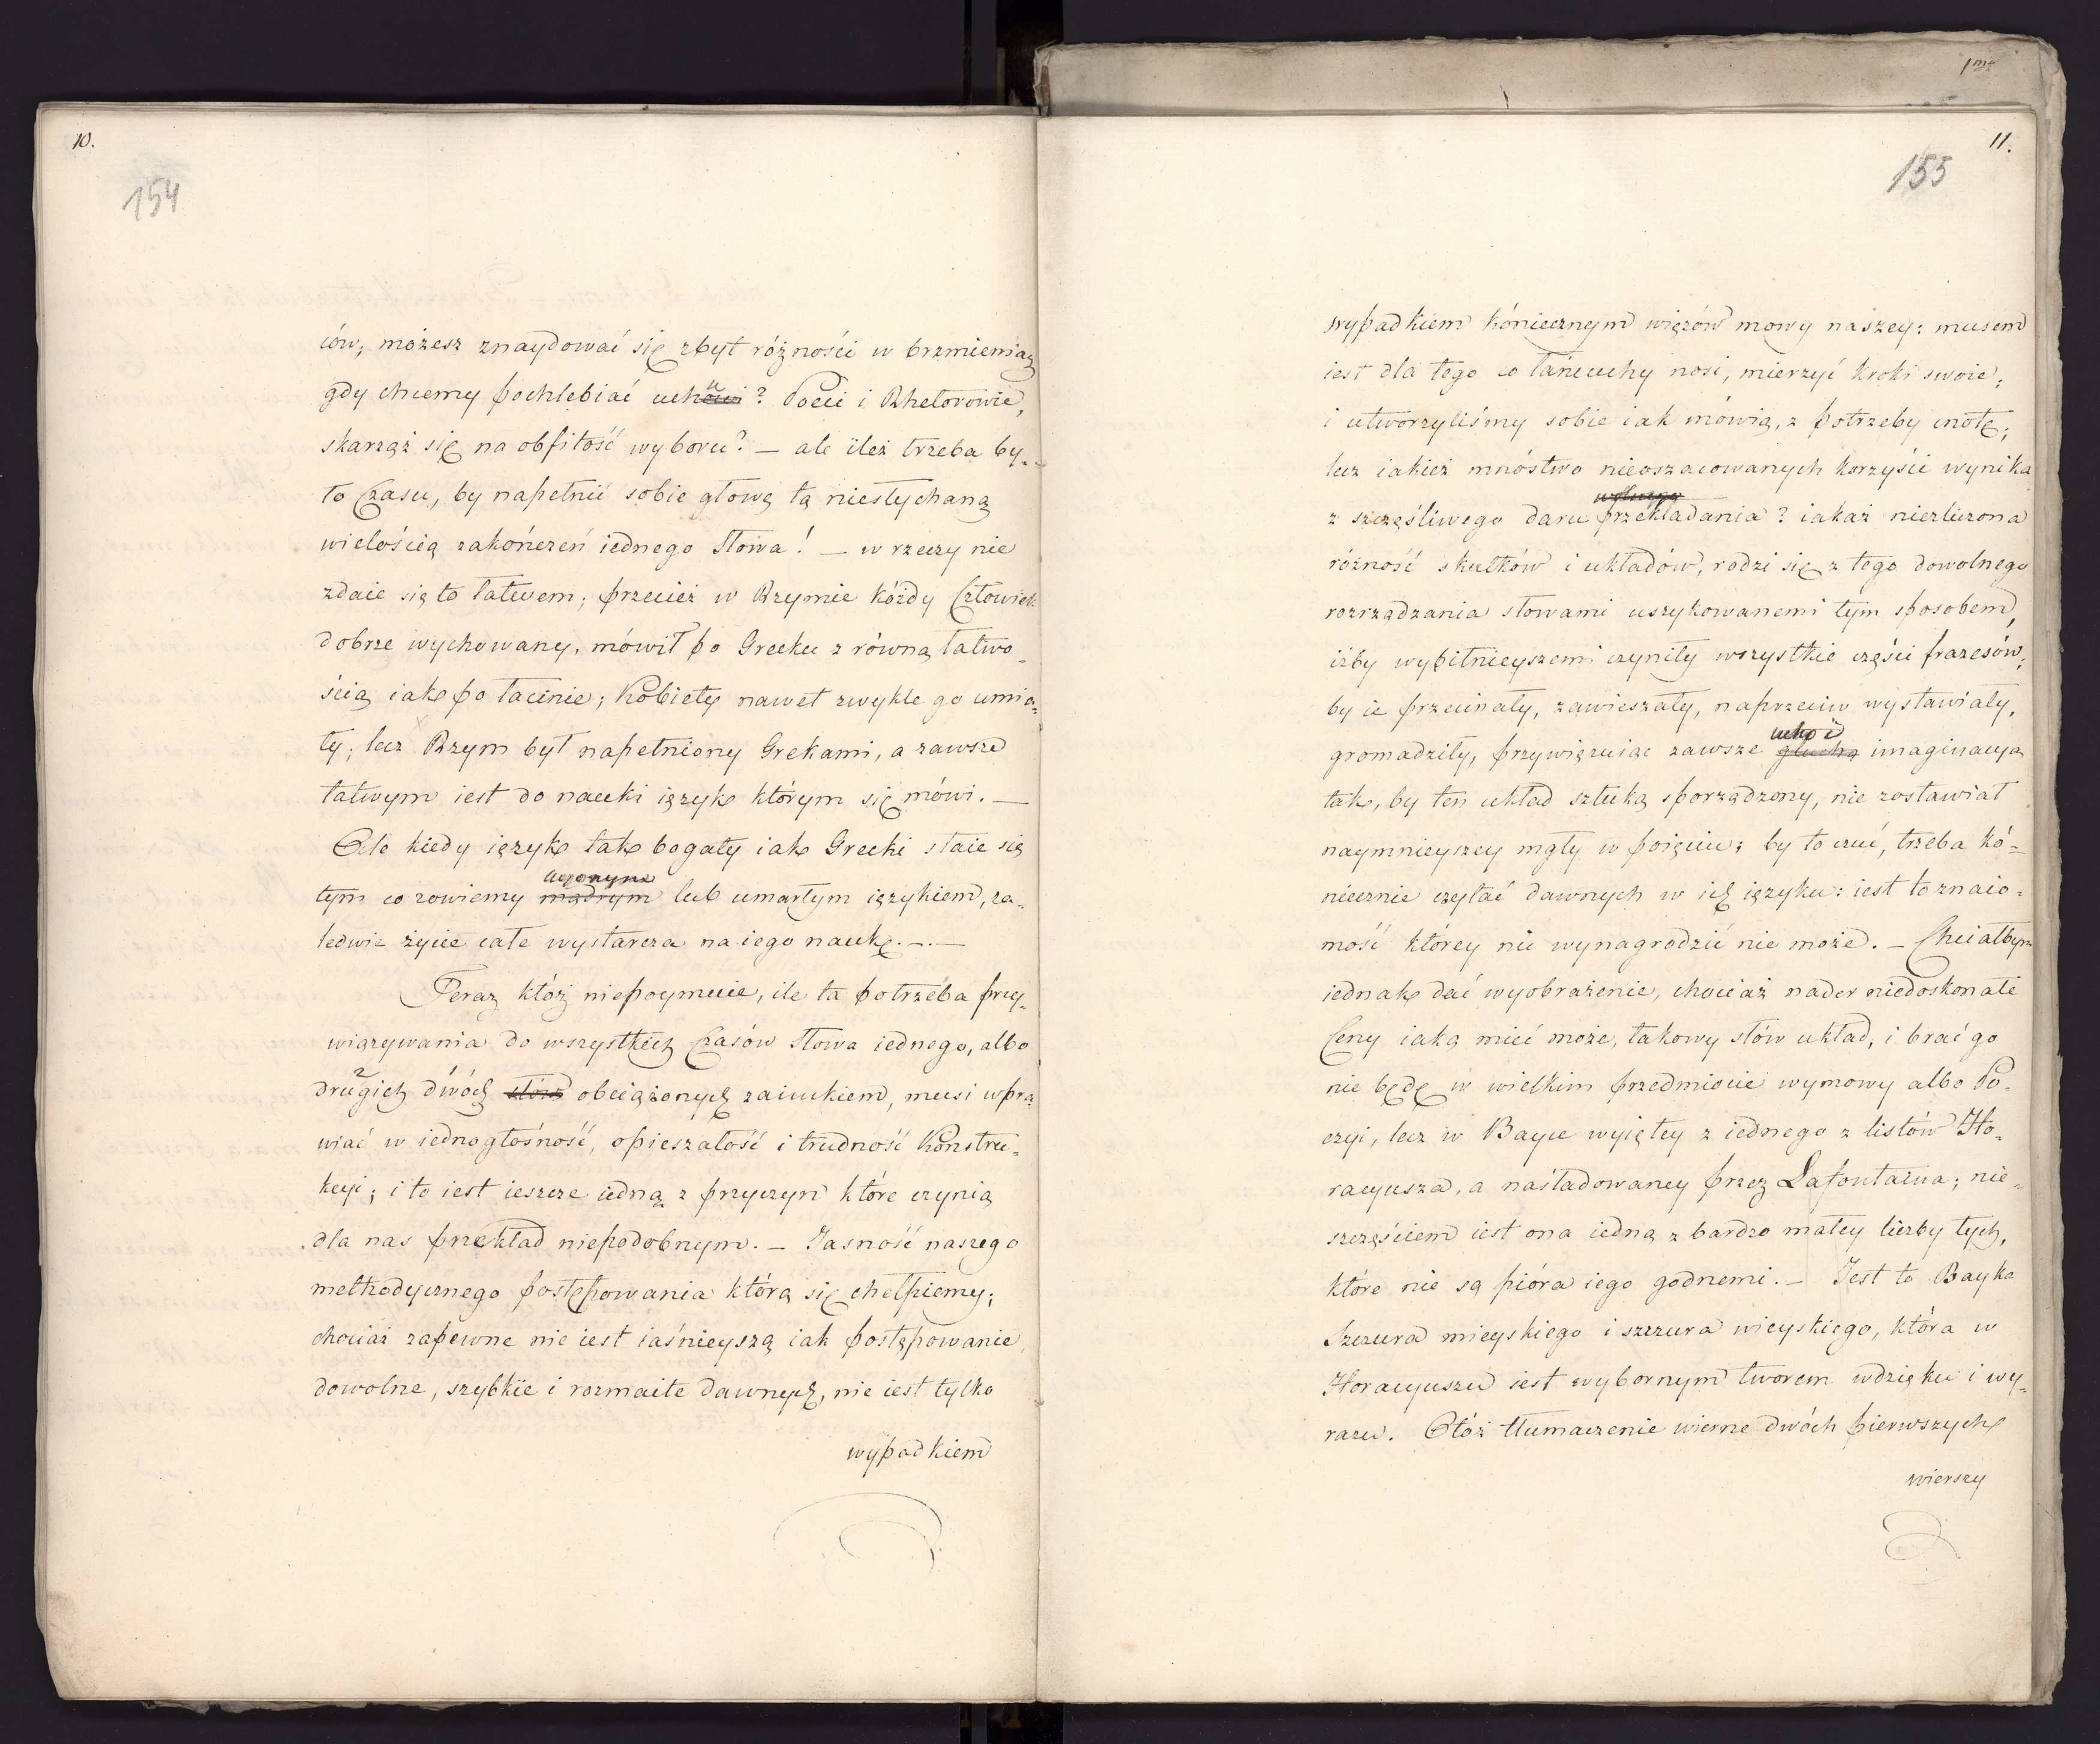 10.
154
iów; możesz znaydować się zbyt różności w brzmieniach
gdy chcemy pochlebiać uchu? Poeci i Rhetorowie,
skarżąż się na obfitość wyboru? — ale ileż trzeba by-
ło Czasu, by napełnić sobie głowę tą niesłychaną
wielością zakończeń iednego Słowa! — w rzeczy nie
zdaie się to łatwem; przecież w Rzymie kóżdy Człowiek
dobrze wychowany, mówił po Grecku z równą łatwo-
ścią iak po łacinie; Kobiety nawet zwykle go umia-
ły; lecz Rzym był napełniony Grekami, a zawsze
łatwym iest do nauki ięzyk którym się mówi. —
Ale kiedy ięzyk tak bogaty iak Grecki staie się
tym co zowiemy mądrym uczonym lub umarłym ięzykiem, za-
ledwie życie całe wystarcza na iego naukę. —.—
Teraz któż niepoymuie, ile ta potrzeba przy-
wiązywania do wszystkich Czasów Słowa iednego, albo
drugich dwóch słów obciążonych zaimkiem, musi wpra-
wiać w iednogłośność, opieszałość i trudność Konstru-
kcyi; i to iest ieszcze iedną z przyczyn które czynią
dla nas przekład niepodobnym. — Jasność naszego
methodycznego postępowania którą się chełpiemy;
chociaż zapewne nie iest iaśnieyszą iak postępowanie
dowolne, szybkie i rozmaite dawnych, nie iest tylko
wypadkiem
1my
11.
155
wypadkiem kóniecznym więzów mowy naszey: musem
iest dla tego co łańcuchy nosi, mierzyć kroki swoie;
i utworzyliśmy sobie iak mówią, z potrzeby cnotę;
lecz iakież mnóstwo nieoszacowanych korzyści wynika
z szczęśliwego daru wolnego przekładania? iakaż niezliczona
różność skutków i układów, rodzi się z tego dowolnego
rozrządzania słowami uszykowanemi tym sposobem,
iżby wypitnieyszemi czyniły wszystkie części frazesów;
by ie przecinały, zawieszały, naprzeciw wystawiały,
gromadziły, przywięzuiąc zawsze głuchą ucho i imaginacyą
tak, by ten układ sztuką sporządzony, nie zostawiał
naymnieyszey mgły w poięciu; by to czuć, trzeba kó-
niecznie czytać dawnych w ich ięzyku: iest to znaio-
mość którey nic wynagrodzić nie może. — Chciałbym
iednak dać wyobrażenie, chociaż nader niedoskonałe
Ceny iaką mieć może, takowy słów układ, i brać go
nie będę w wielkim przedmiocie wymowy albo Po-
ezyi, lecz w Bayce wyiętey z iednego z listów Ho-
racyusza, a naśladowaney przez Lafontaina; nie-
szczęściem iest ona iedną z bardzo małey liczby tych,
które nie są pióra iego godnemi. — Jest to Bayka
Szczura mieyskiego i szczura wieyskiego, która w
Horacyuszu iest wybornym tworem wdzięku i wy-
razu. Otóż tłumaczenie wierne dwóch pierwszych
wierszy